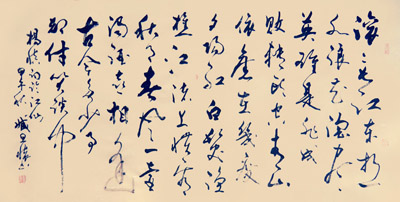 滚々长江东逝
水浪花淘尽
英雄是非成
败转头空青山
依旧在几度
夕阳红白发渔
樵江渚上惯看
秋月春风一壶
浊酒喜相逢
古今多少事
都付笑谈中
杨慎词临江仙
甲午秋